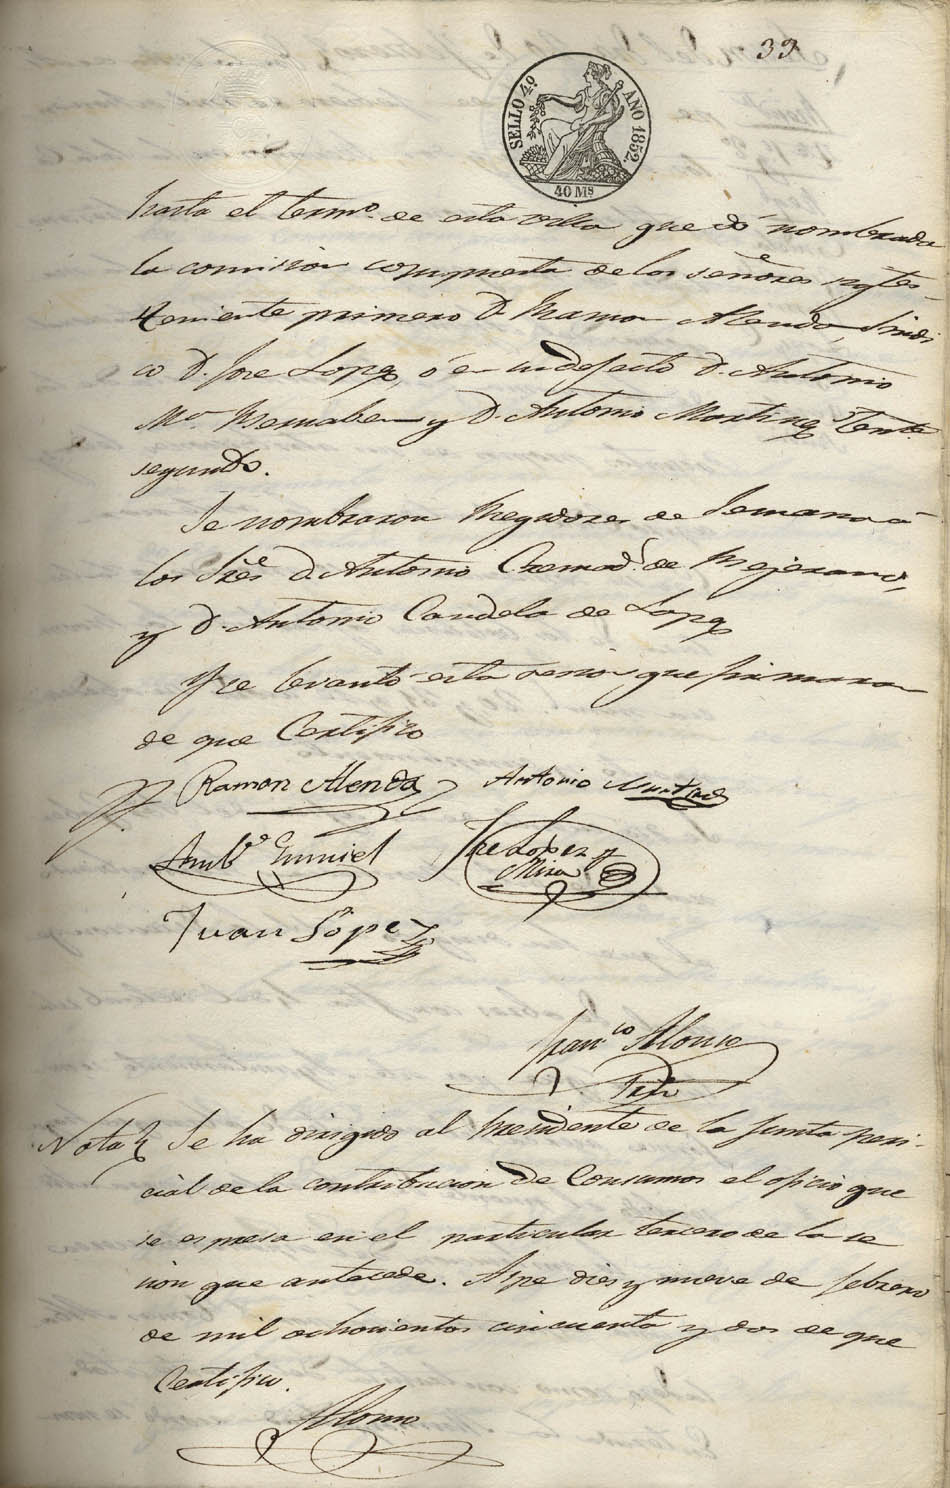 39
SELLO 4º AÑO 1852.
40 Ms
hasta el termº. de esta villa quedó nombrada
la comision compuesta de los señores
teniente primero D. Ramon Alenda, Sindi
co D. Jose Lopez, ó en su defecto D. Antonio
Mª Bernabeu y D. Antonio Martinez Tente
segundo.
Se nombraron Regidores de Semana á
los Sres D. Antonio Cremads. de
y D. Antonio Candela de Lopez
Y se levantó esta sesion que firmaron
de que Certifico
Ramon Alenda Antonio Martinez
Jose Lopez y
Mira
Juan López
Franco Alonso
Nota Se ha dirigido al Presidente de la Junta peri-
cial de la contribucion de Consumos el oficio que
se espresa en el particular tercero de la se
sion que antecede. Aspe dies y nueve de febrero
de mil ochocientos cincuenta y dos de que
Certifico.
Alonso